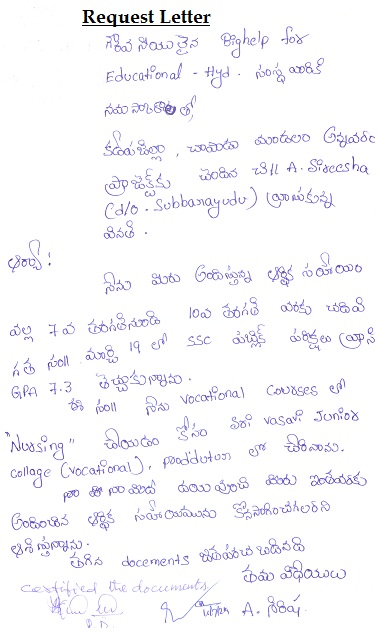 Request Letter
గౌరవనీయులైన Bighelp for
Educational - Hyd. సంస్థ వారికి
నమస్కారాలతో,
కడపజిల్లా, చాపాడు మండలం అన్నవరం
ప్రాజెక్ట్‌కు చెందిన చి॥ A. Sireesha
(d/o. Subbanayudu) వ్రాయుకున్న
వినతి.
ఆర్యా:
నేను మీరు అందిస్తున్న ఆర్థిక సహాయం
వల్ల 7వ తరగతినుండి 10వ తరగతి వరకు చదివి
గత సం॥ మార్చి 19 లో SSC పబ్లిక్ పరీక్షలు వ్రాసి
GPA 7.3 తెచ్చుకున్నాను.
ఈ సం॥ నేను vocational courses లో
"Nursing" చేయడం కోసం vasavi Junior
collage (vocational), proddutur లో చేరినాను.
నా మీద దయ వుంచి మీరు ఇంతవరకు
అందించిన ఆర్థిక సహాయమును కొనసాగించగలరని
ఆశిస్తున్నాను.
తగిన docements జతపరచ బడినది
certified the documents తమ విధేయులు
A. శిరీష